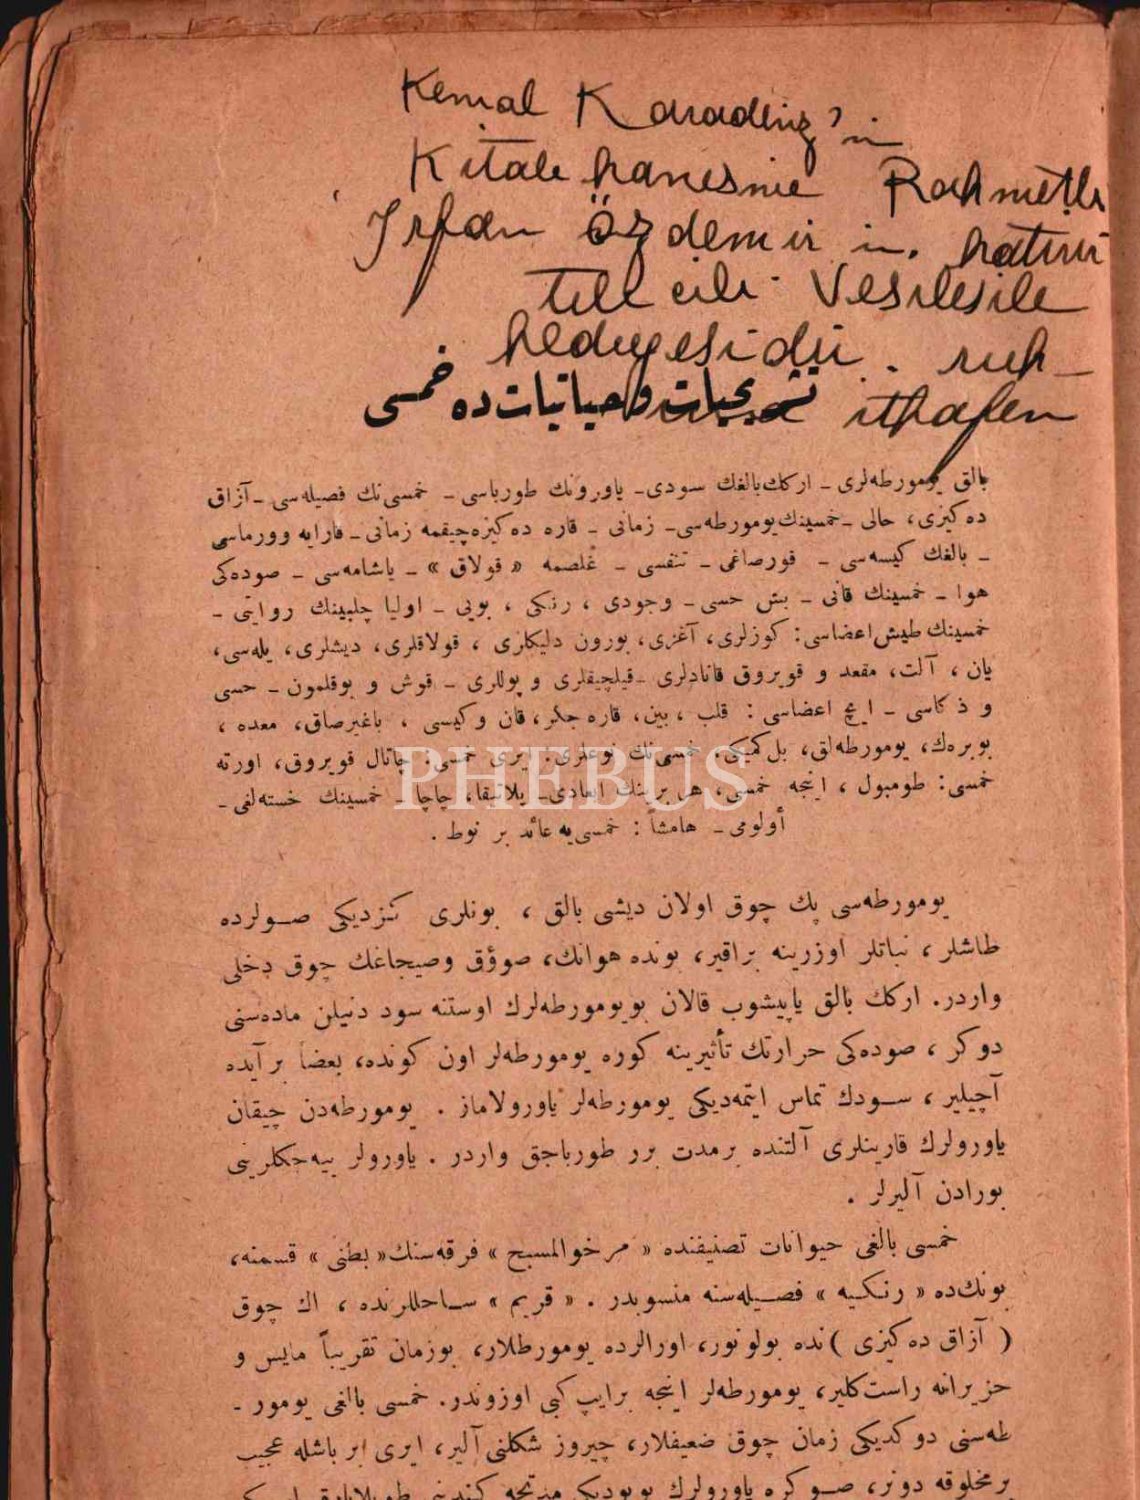 Kemal Karadeniz'in
Kitabhanesine Rahmetli
İrfan Özdemir in. hatırı
vesilesile
hediyesidir. ruh-
ithafen
تشریحیات وحیاتیات ده خمسی
بالق یومورطه‌لری ـ ارکك بالغك سودی ـ یاورونك طورباسی ـ خمسی‌نك فصیله‌سی ـ آزاق
ده‌کیزی، حالی ـ خمسینك یومورطه‌سی ـ زمانی ـ قاره ده‌کیزه‌چیقمه زمانی ـ قارایه وورماسی
ـ بالغك کیسه‌سی ـ قورصاغی ـ تنفسی ـ غلصمه « قولاق » ـ یاشامه‌سی ـ صوده‌کی
هوا ـ خمسینك قانی ـ بش حسی ـ وجودی ، رنکی ، بویی ـ اولیا چلبینك روایتی ـ
خمسینك طیش اعضاسی: کوزلری، آغزی، بورون دلیکلری ، قولاقلری، دیشلری، یله‌سی،
یان ، آلت، مقعد و قویروق قانادلری ـ قیلچیقلری و پوللری ـ قوش و بوقلمون ـ حسی
و ذکاسی ـ ایچ اعضاسی : قلب ، بین، قاره جکر، قان وکیسی ، باغیرصاق، معده ،
بوبرهك، یومورطه‌لق، بل کمیکی. خمسی‌نك نوعلری: ایری خمسی: چاتال قویروق، اورته
خمسی: طومبول ، اینجه خمسی، هر برینك ابعادی ـ پلاتیقا، چاچا ـ خمسینك خسته‌لغی ـ
أولومی ـ هامشاً : خمسی‌یه عائد بر نوط .
PHEBUS
یومورطه‌سی پك چوق اولان دیشی بالق ، بونلری کزدیکی صولرده
طاشلر ، نباتلر اوزرینه براقیر، بونده هوانك، صوؤق وصیجاغك چوق دخلی
واردر. ارکك بالق یاپیشوب قالان بویومورطه‌لرك اوستنه سود دنیلن ماده‌سنی
دوکر ، صوده‌کی حرارتك تأثیرینه کوره یومورطه‌لر اون کونده، بعضا برآیده
آچیلیر ، سودك تماس ایتمه‌دیکی یومورطه‌لر یاورولاماز . یومورطه‌دن چیقان
یاورولرك قارینلری آلتنده برمدت برر طورباجق واردر . یاورولر ییه‌جکلرینی
بورادن آلیرلر .
خمسی بالغی حیوانات تصنیفنده « مرخوالمسبح » فرقه‌سنك « بطنی » قسمنه،
بونك‌ده « رنکیه » فصیله‌سنه منسوبدر . « قریم » ساحللرنده ، اك چوق
( آزاق ده‌کیزی ) نده بولونور، اورالرده یومورطلار، بوزمان تقریباً مایس و
حزیرانه راست‌کلیر، یومورطه‌لر اینجه برایپ کبی اوزوندر. خمسی بالغی یومور ـ
طه‌سنی دوکدیکی زمان چوق ضعیفلار، چیروز شکلنی آلیر، ایری بر باشله عجیب
برمخلوقه دونر، صوکره یاورولرك بویودیکی